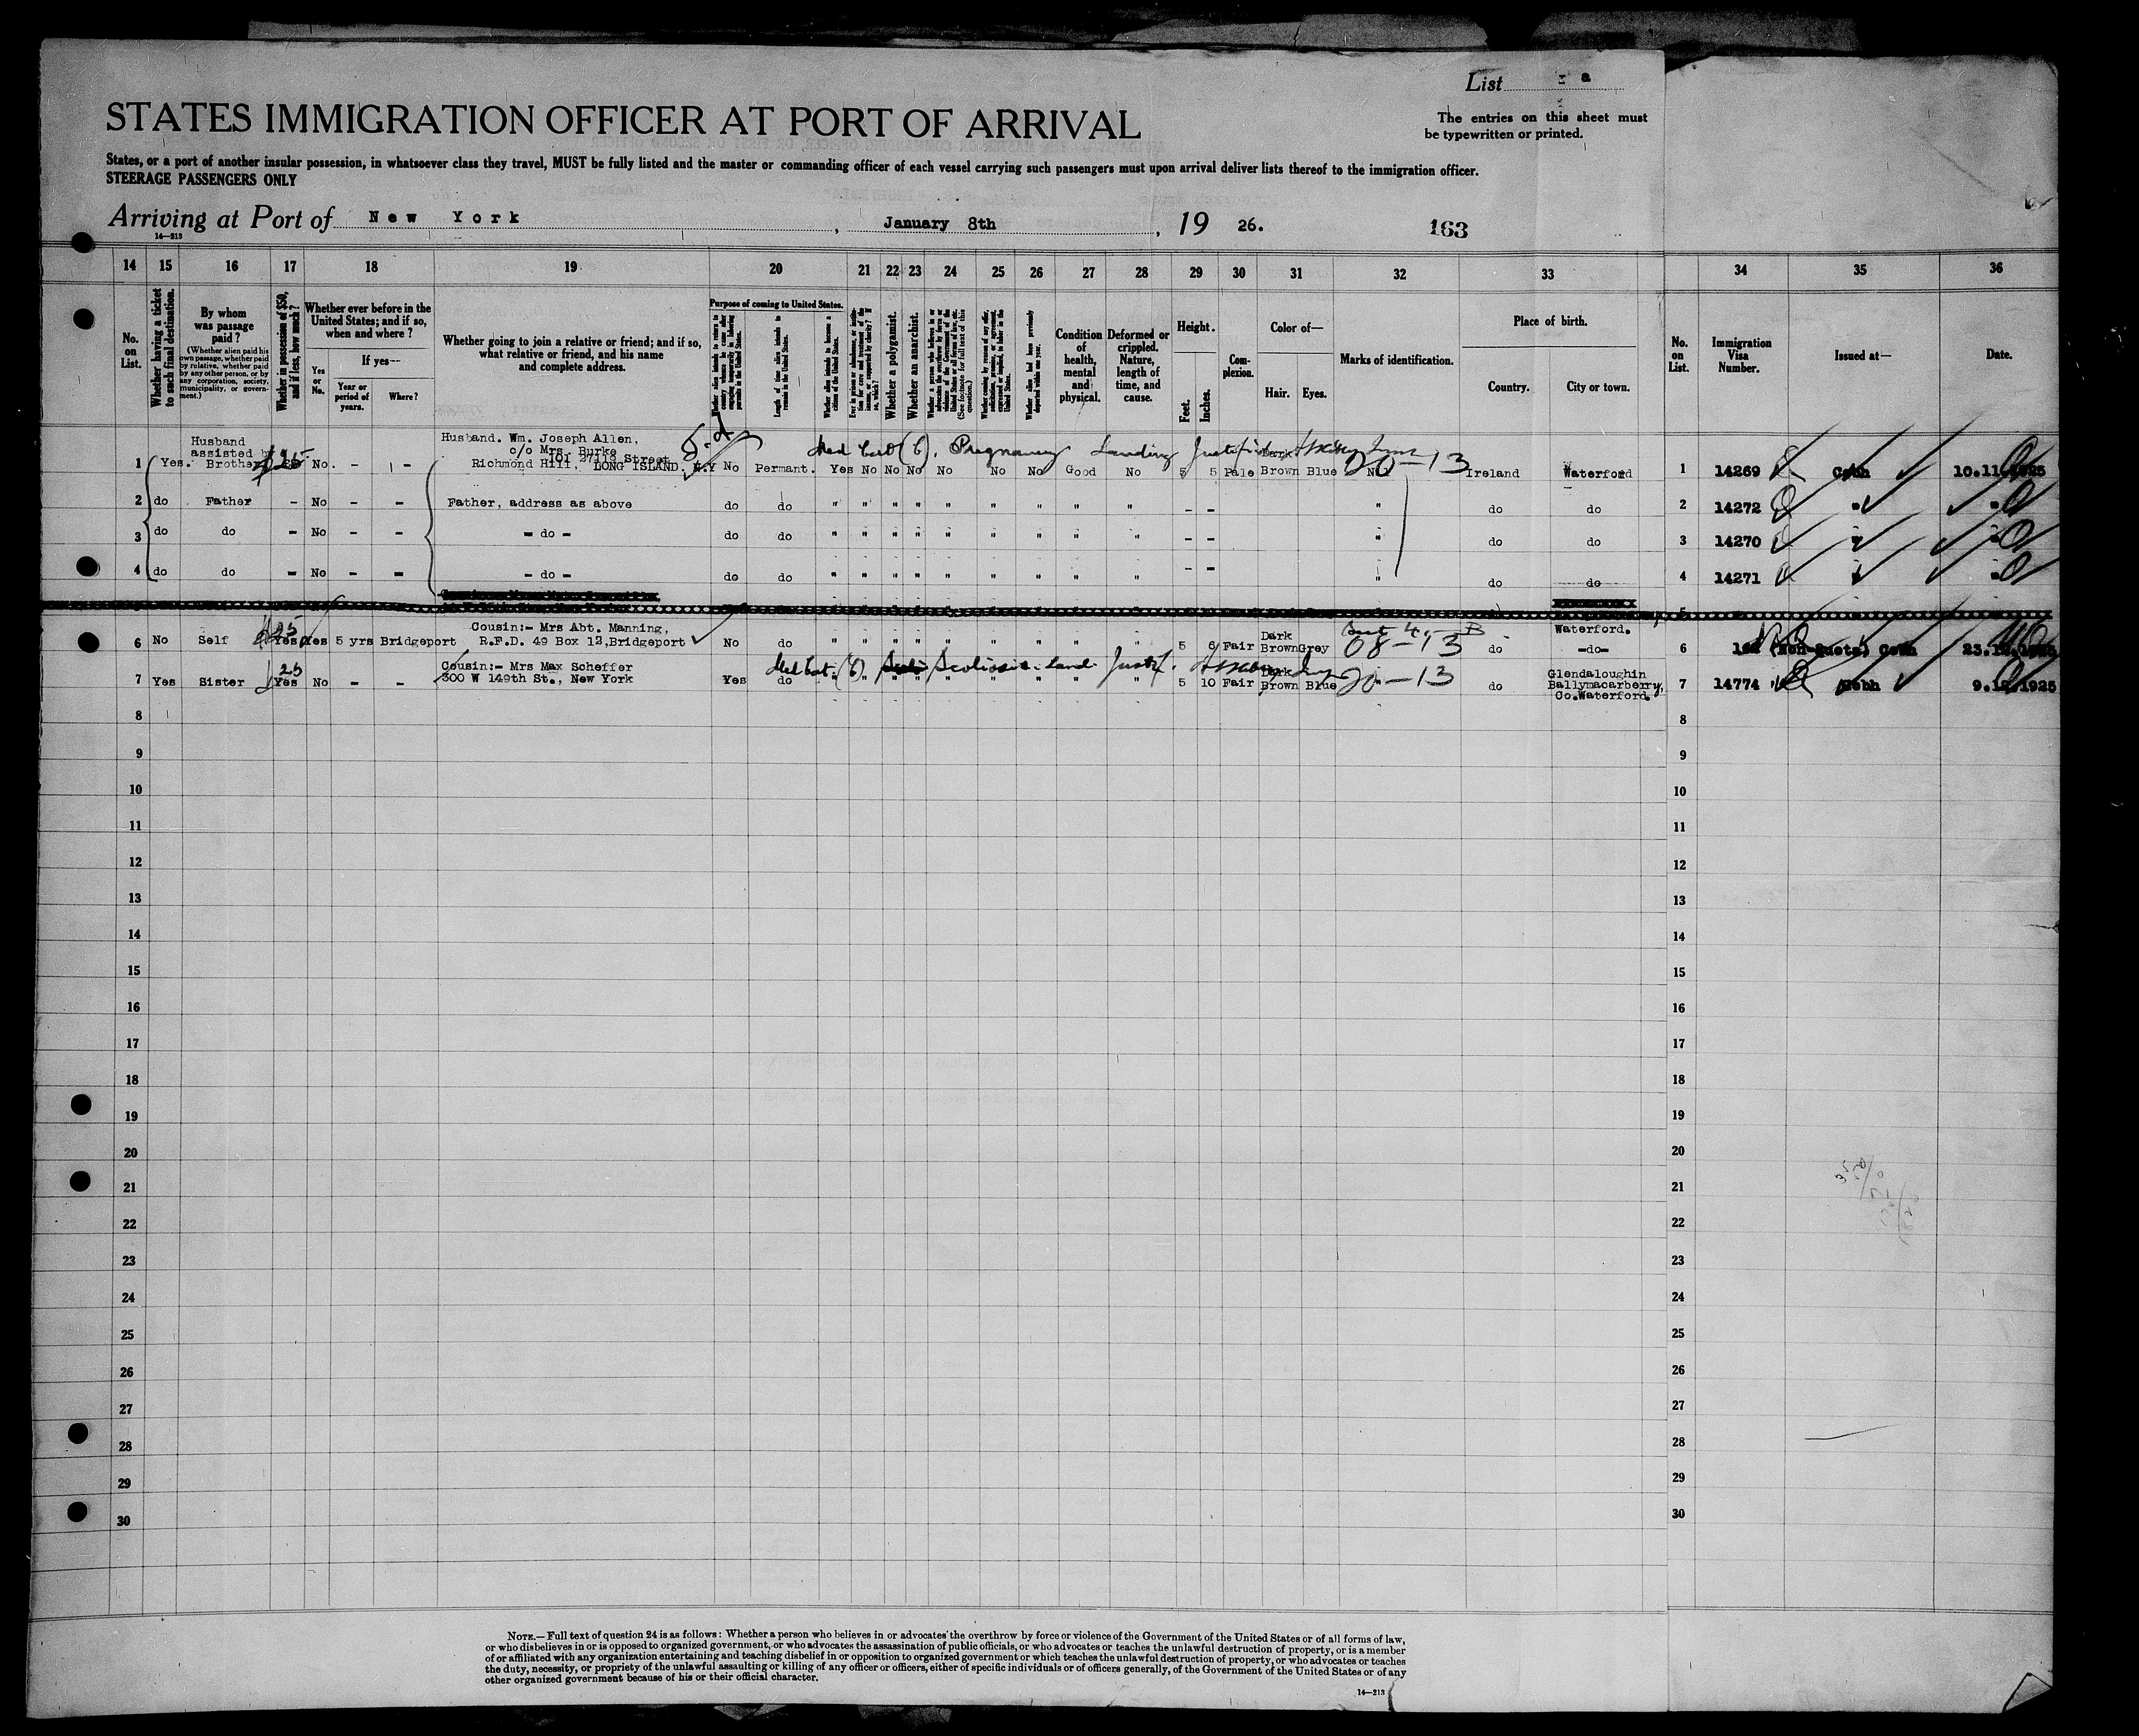 List a
STATES IMMIGRATION OFFICER AT PORT OF ARRIVAL
The entries on this sheet must
be typewritten or printed.
States, or a port of another insular possession, in whatsoever class they travel, MUST be fully listed and the master or commanding officer of each vessel carrying such passengers must upon arrival deliver lists thereof to the immigration officer.
STEERAGE PASSENGERS ONLY
Arriving at Port of New York, January 8th, 19 26. 163
14—213
14 15 16 17 18 19 20 21 22 23 24 25 26 27 28 29 30 31 32 33 34 35 36
No. on List.
Whether having a ticket to such final destination.
By whom was passage paid?
(Whether alien paid his own passage, whether paid by relative, whether paid by any other person, or by any corporation, society, municipality, or government.)
Whether in possession of $50, and if less, how much?
Whether ever before in the United States; and if so, when and where?
Yes or No.
If yes—
Year or period of years.
Where?
Whether going to join a relative or friend; and if so, what relative or friend, and his name and complete address.
Purpose of coming to United States.
Length of time alien intends to remain in the United States.
Whether alien intends to become a citizen of the United States.
Whether a polygamist.
Whether an anarchist.
(See footnote for full text of this question.)
Condition of health, mental and physical.
Deformed or crippled. Nature, length of time, and cause.
Height.
Feet. Inches.
Complexion.
Color of—
Hair. Eyes.
Marks of identification.
Place of birth.
Country. City or town.
No. on List.
Immigration Visa Number.
Issued at—
Date.
Husband assisted Brother
Husband. Wm. Joseph Allen,
c/o Mrs. Burke
Med Cert (6). Pregnancy Landing
1 Yes. No. - - Richmond Hill, LONG ISLAND, N.Y No Permant. Yes No No No No No No Good No 5 5 Pale Brown Blue 20-13 Ireland Waterford 1 14269 Cobh 10.11.1925
2 do Father - No - - Father, address as above do do " " " " " " " " " - - " do do 2 14272 "
3 do do - No - - - do - do do " " " " " " " " " - - " do do 3 14270 "
4 do do - No - - - do - do do " " " " " " " " " - - " do do 4 14271 "
5
Cousin:- Mrs Abt. Manning,
Waterford.
6 No Self Yes Yes 5 yrs Bridgeport R.F.D. 49 Box 12,Bridgeport No do " " " " " " " " " 5 6 Fair Dark Brown Grey 08-13 do -do- 6 (Non-Quota) Cobh
Cousin:- Mrs Max Scheffer
Med Cert. (6) Scoliosis. Land.
Glendaloughin
7 Yes Sister 25 Yes No - - 300 W 149th St., New York Yes do " " " " " " " 5 10 Fair Dark Brown Blue 20-13 do Ballymacarberry, 7 14774 Cobh
Co.Waterford.
8 8
9 9
10 10
11 11
12 12
13 13
14 14
15 15
16 16
17 17
18 18
19 19
20 20
21 21
22 22
23 23
24 24
25 25
26 26
27 27
28 28
29 29
30 30
NOTE.—Full text of question 24 is as follows: Whether a person who believes in or advocates the overthrow by force or violence of the Government of the United States or of all forms of law,
or who disbelieves in or is opposed to organized government, or who advocates the assassination of public officials, or who advocates or teaches the unlawful destruction of property, or is a member
of or affiliated with any organization entertaining and teaching disbelief in or opposition to organized government or which teaches the unlawful destruction of property, or who advocates or teaches
the duty, necessity, or propriety of the unlawful assaulting or killing of any officer or officers, either of specific individuals or of officers generally, of the Government of the United States or of any
other organized government because of his or their official character.
14—213